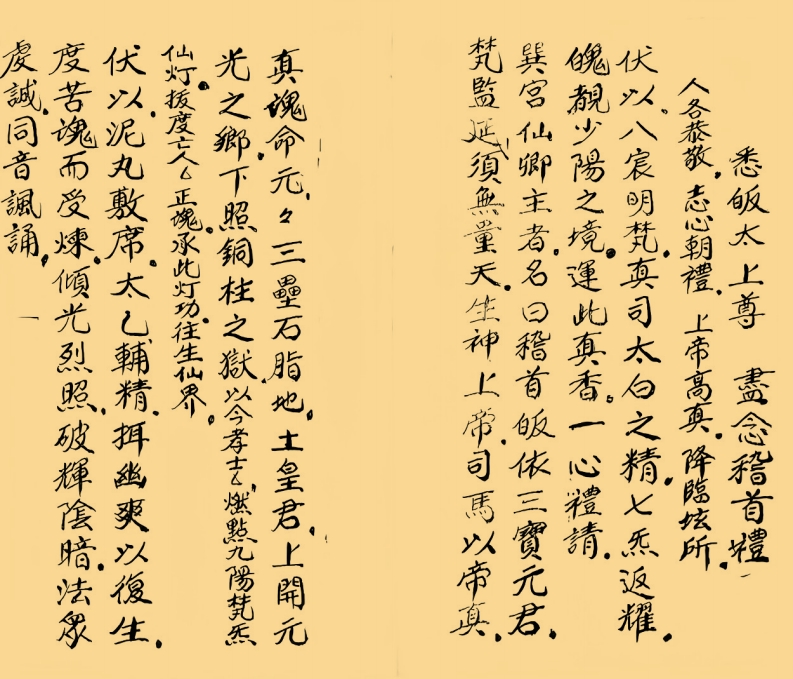 悉皈太上尊　盡念稽首禮
人各恭敬，志心朝禮，上帝高真，降臨坛所。
伏以八宸明梵，真司太白之精，七炁返耀，
魄覩少陽之境，運此真香，一心禮請，
巽宮仙卿主者，名曰稽首皈依三寶元君，
梵監延須無量天，生神上帝，司馬以帝真，
真魂命元，々三壘石脂地，土皇君，上開元
光之鄉，下照銅柱之獄，以今孝士厶，燃點九陽梵炁
仙灯，拔度亡人厶正魂，承此灯功，往生仙界，
伏以泥丸敷席，太乙輔精，拜幽爽以復生，
度苦魂而受煉，傾光烈照，破輝陰暗，法眾
虔誠，同音諷誦，